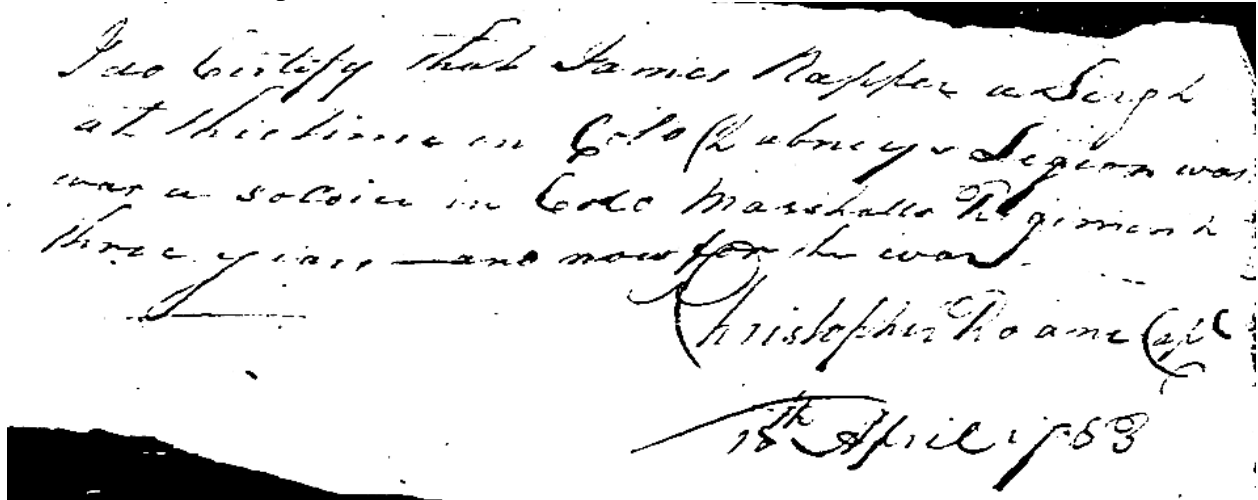 I do Certify that James Rapper a Sergt
at this time in Colo Dabneys Legion was
was a soldier in Colo Marshalls Regiment
three years — and now for the war
Christopher Roane Capt
18th April 1783